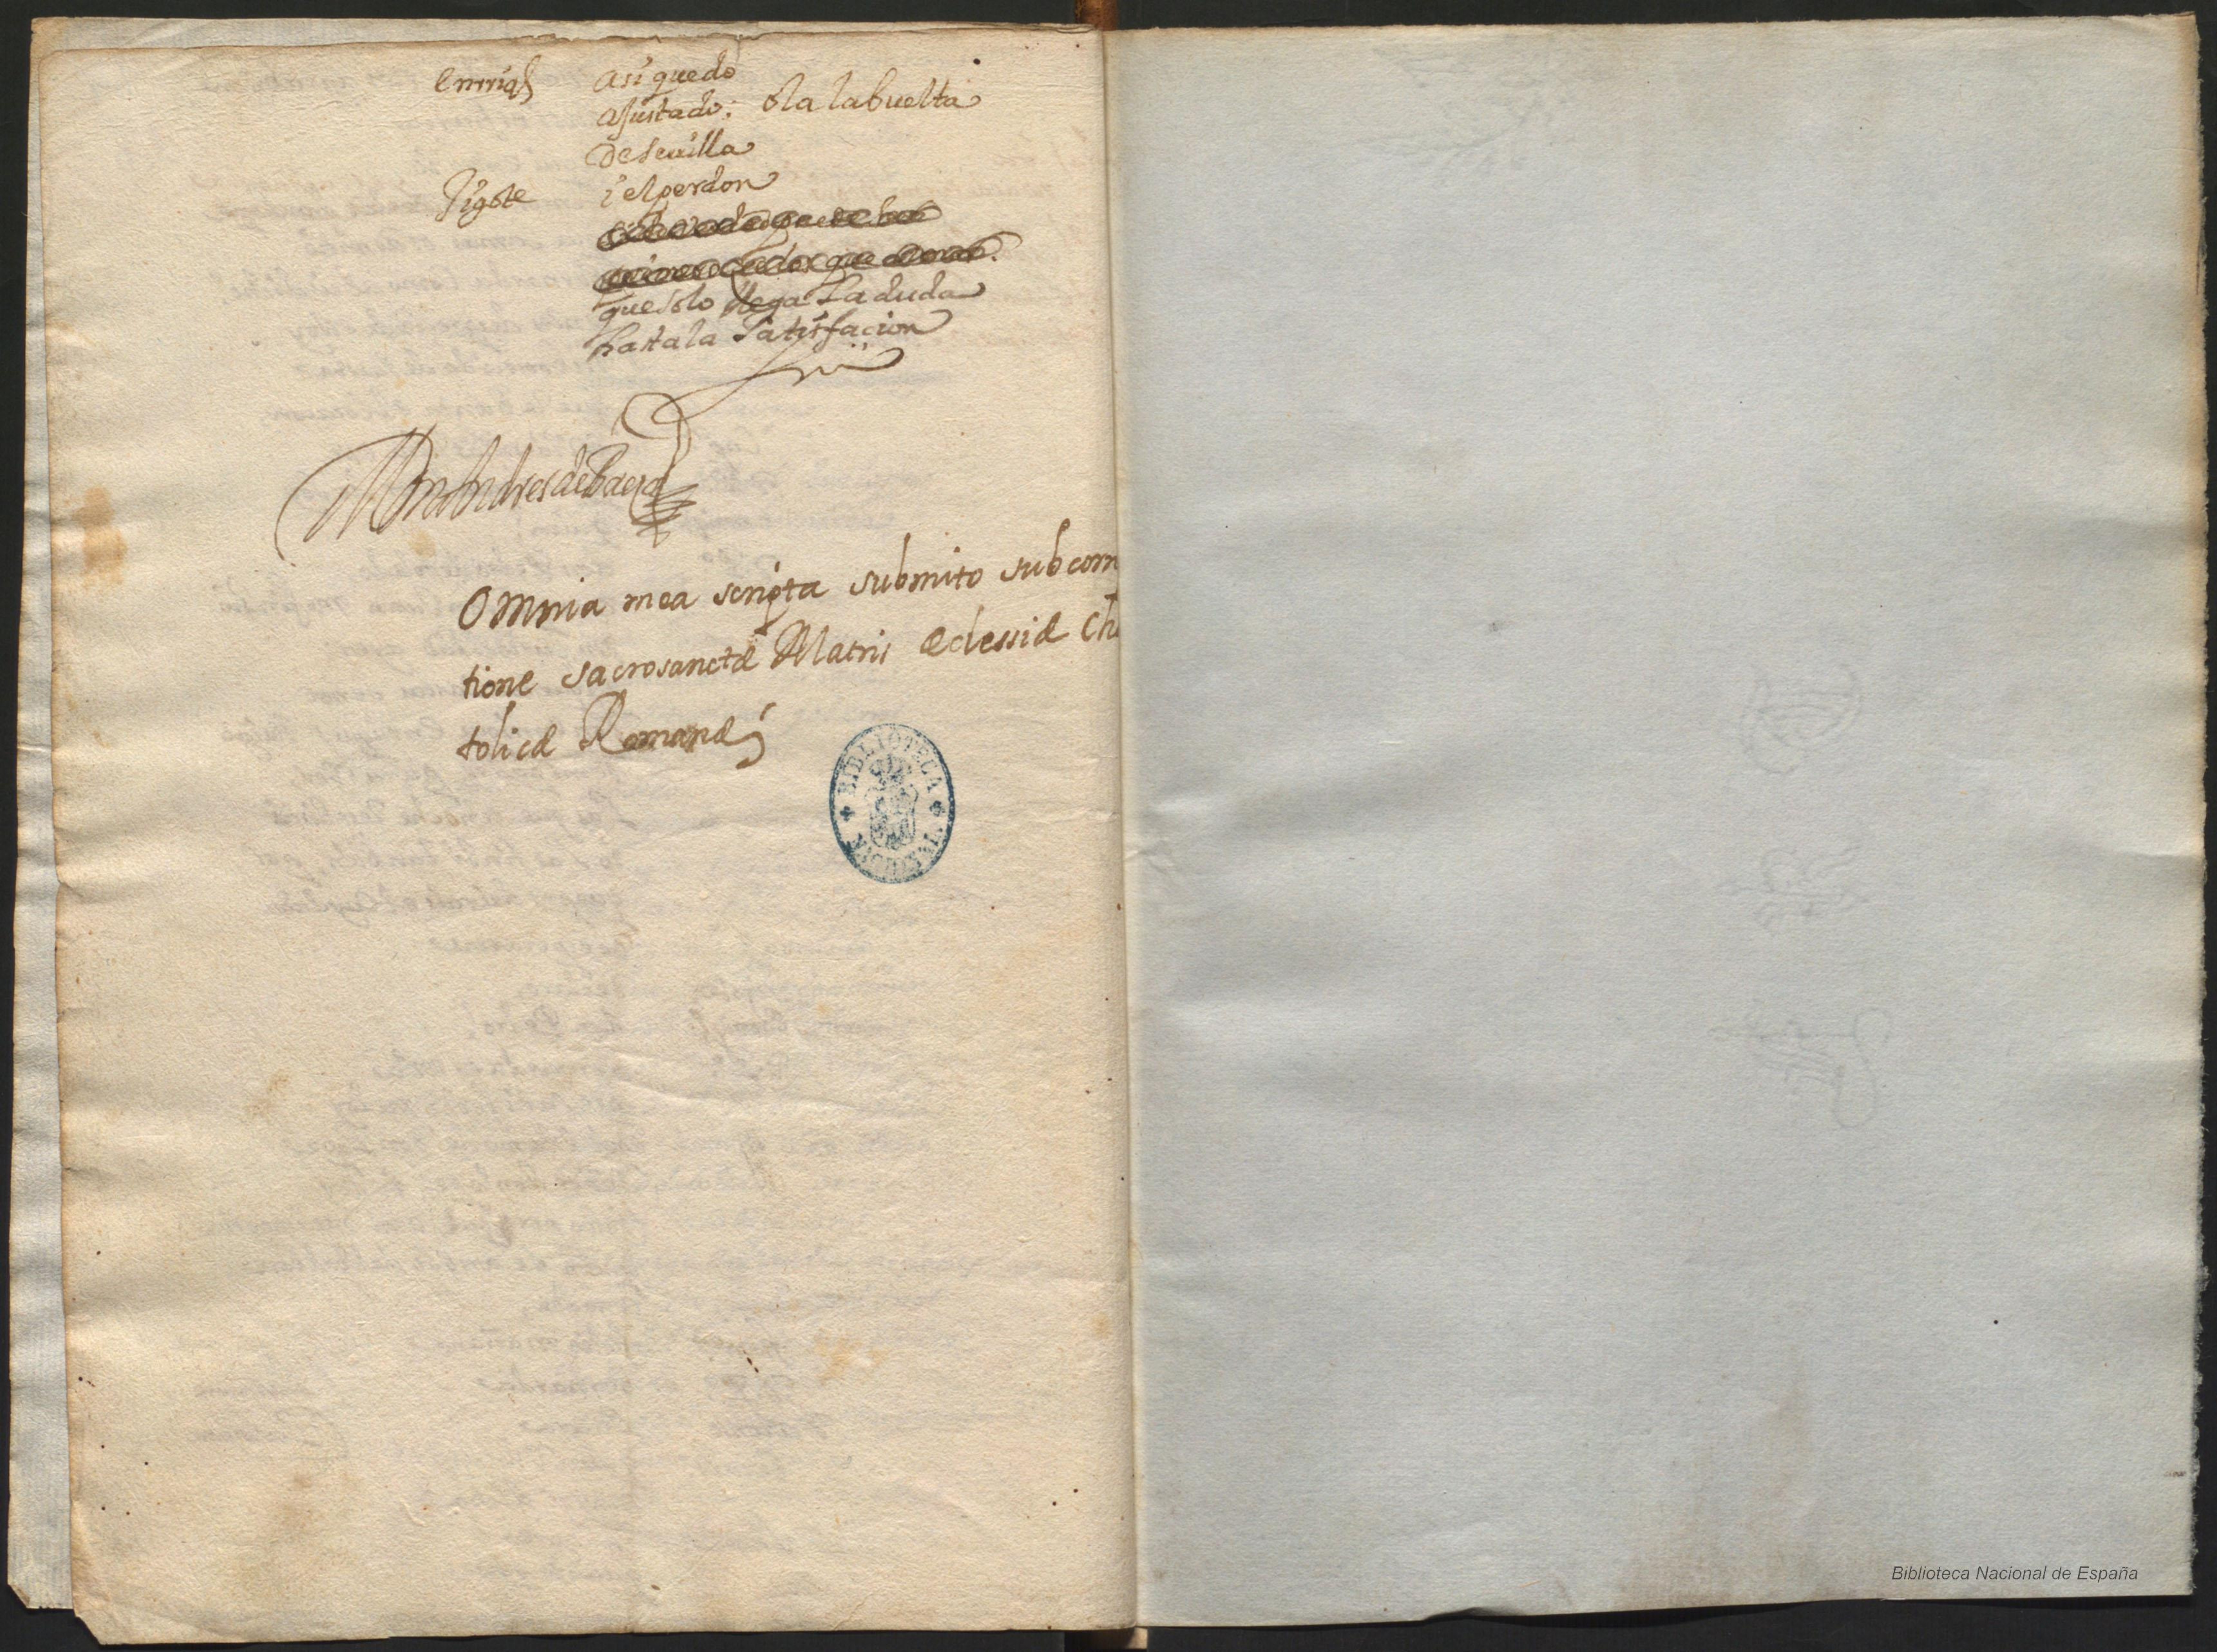 Enrriq̃ asi quedo
ajustado: ola la buelta
de Seuilla
Jigote i el perdon
que solo llega La duda
hasta la Satisfacion
Don Andres de Baeza
Omnia mea scripta submito sub corre
tione sacrosanctæ Matris Eclessiæ Cha
tolicæ Romanæ
BIBLIOTECA NACIONAL
Biblioteca Nacional de España